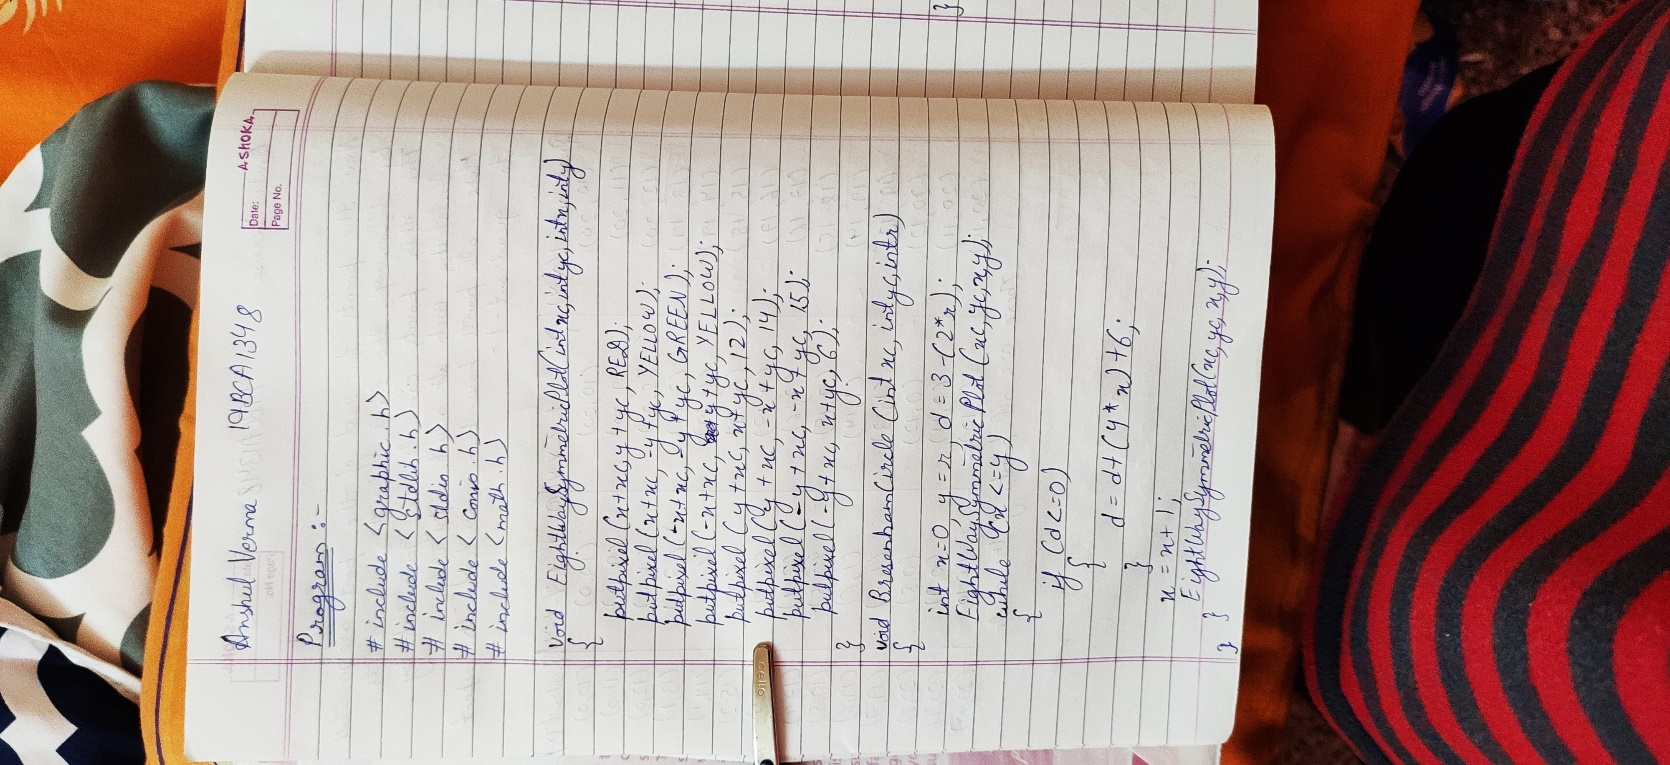 ASHOKA
Date:
Page No.
Anshul Verma 19BCA1348
Program :-
# include <graphic.h>
# include <stdlib.h>
# include <stdio.h>
# include <conio.h>
# include <math.h>
void EightWaySymmetricPlot(int xc, int yc, int x, int y)
{
putpixel (x+xc, y+yc, RED);
putpixel (x+xc, -y+yc, YELLOW);
putpixel (-x+xc, -y+yc, GREEN);
putpixel (-x+xc, y+yc, YELLOW);
putpixel (y+xc, x+yc, 12);
putpixel (y+xc, -x+yc, 14);
putpixel (-y+xc, -x+yc, 15);
putpixel (-y+xc, x+yc, 6);
}
void BresenhamCircle (int xc, int yc, int r)
{
int x=0 y=r, d=3-(2*r);
EightWaySymmetricPlot (xc, yc, x, y);
while (x <=y)
{
if (d<=0)
{
d = d+(4*x)+6;
}
x = x+1;
EightWaySymmetricPlot(xc, yc, x, y);
}
}
}
cello